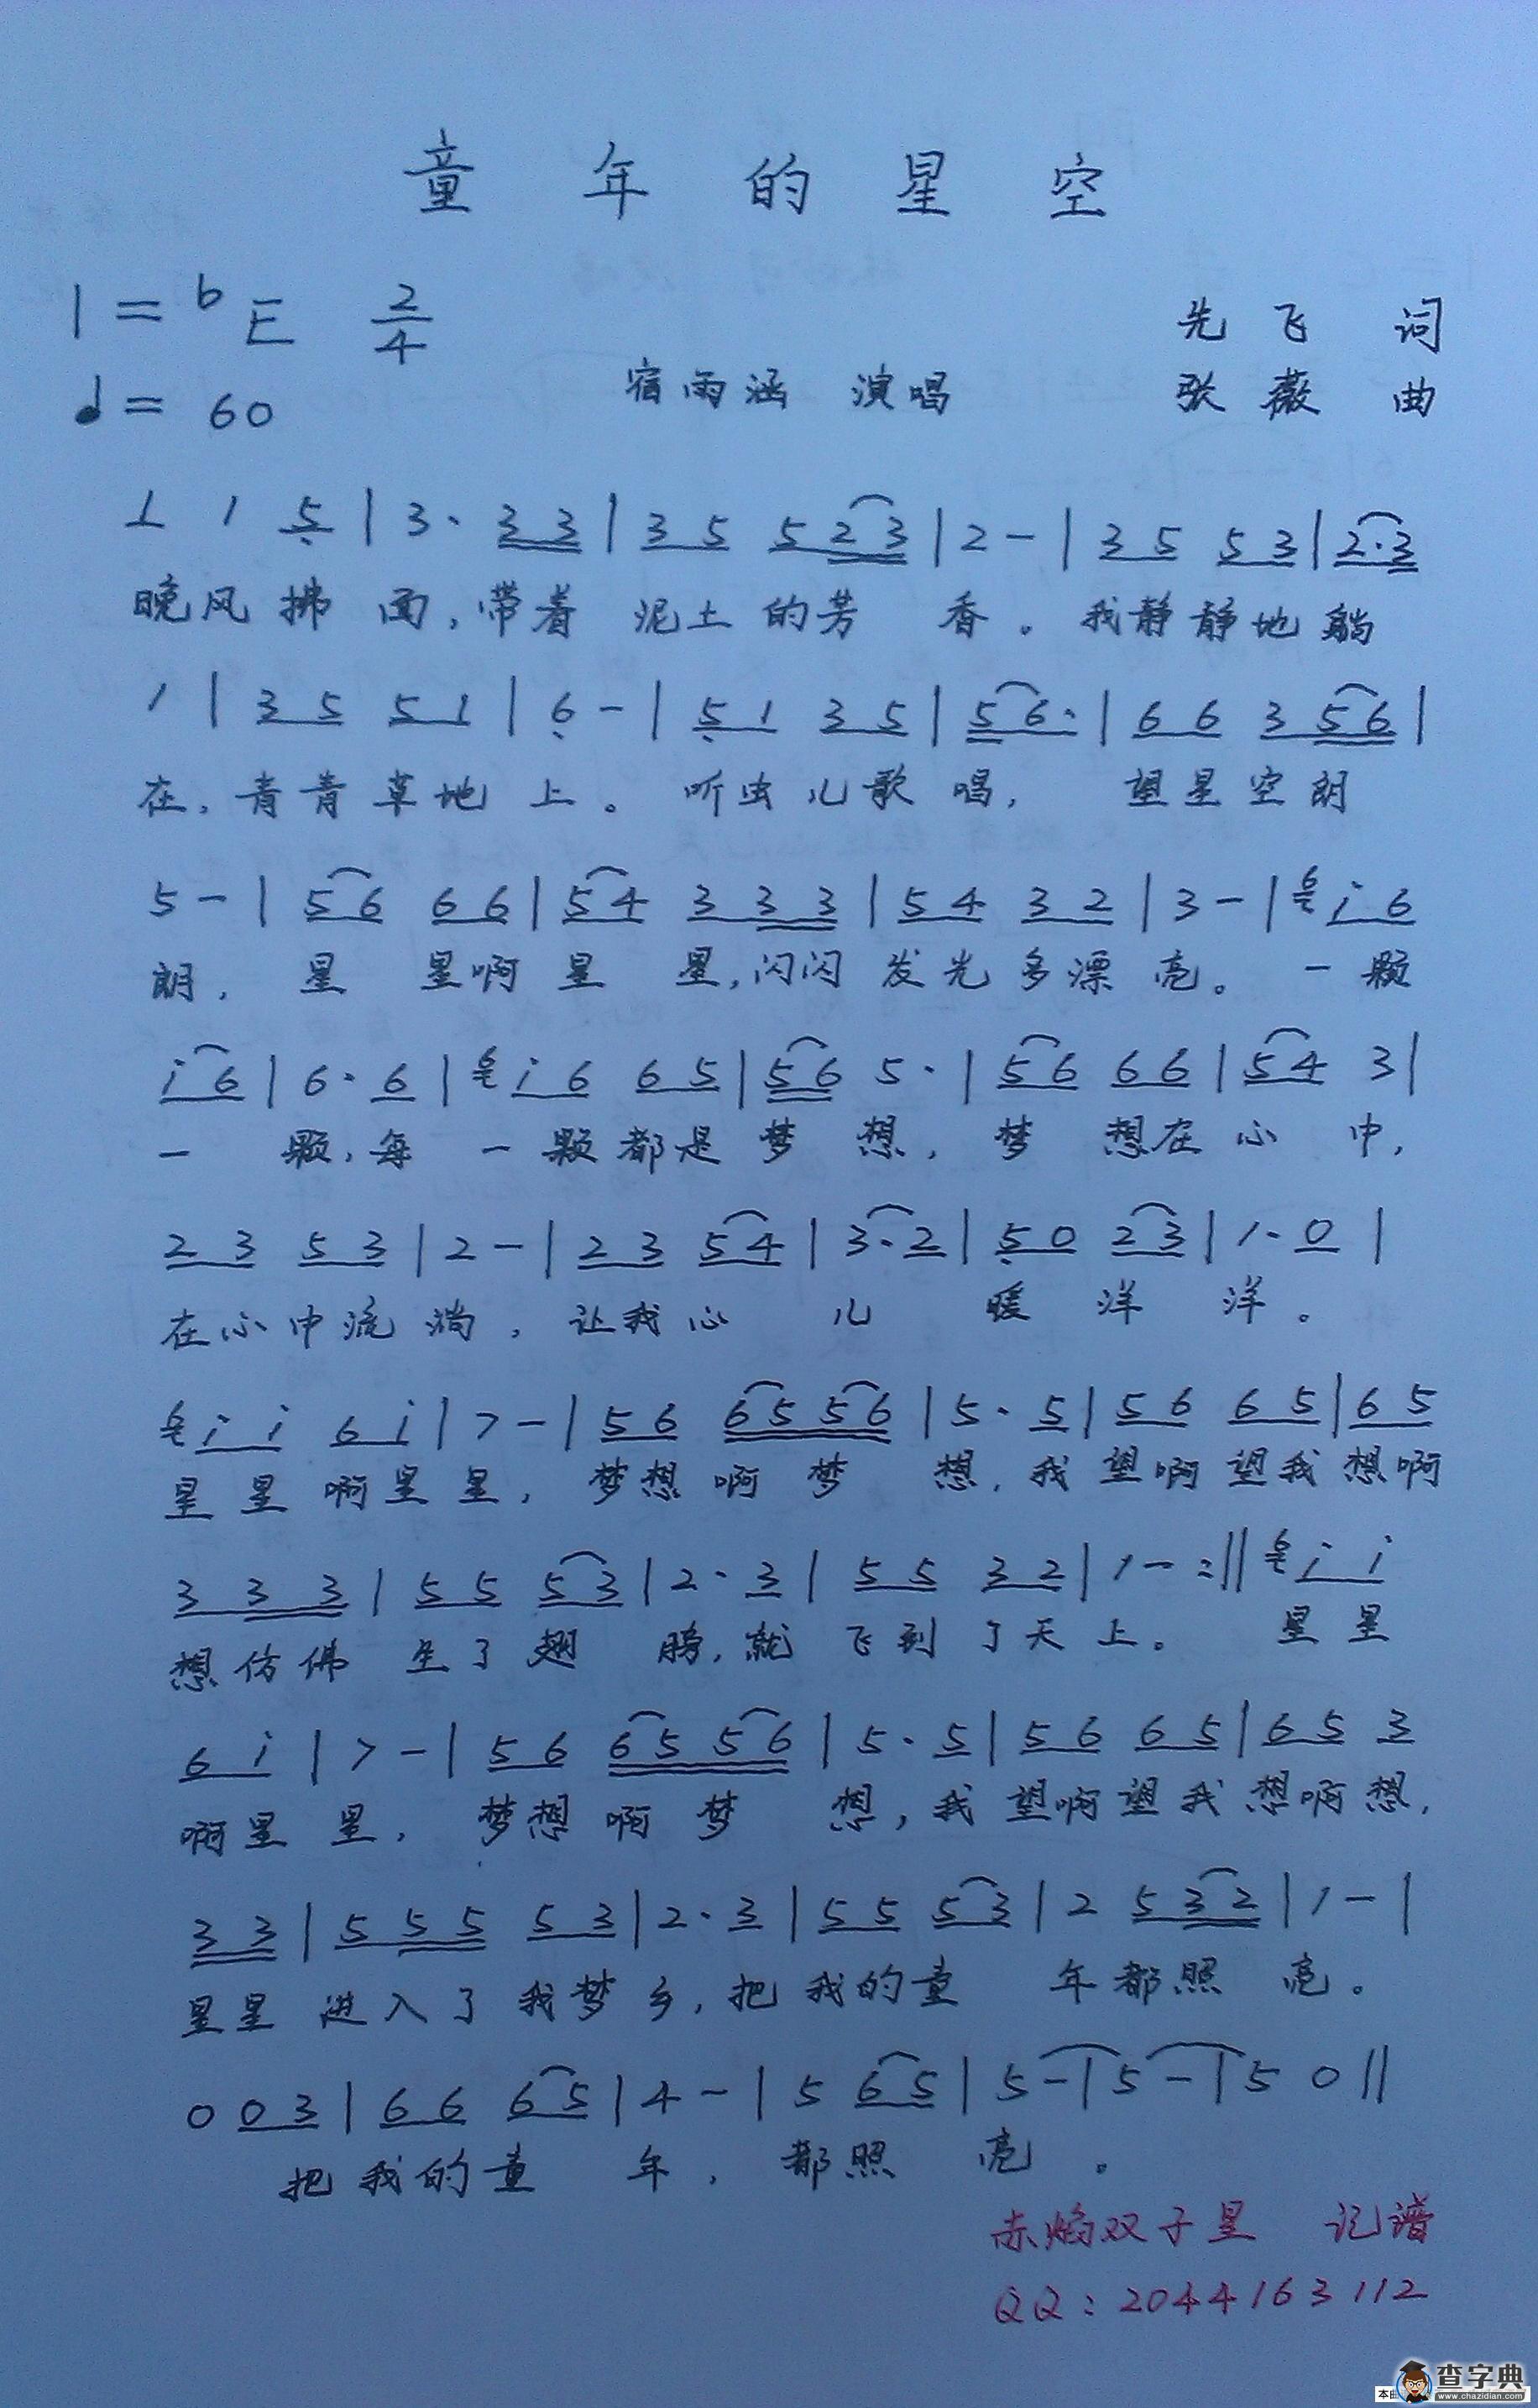 童年的星空
1=bE 2/4
宿雨涵 演唱
先飞 词
♩=60
张薇 曲
1 1 5 | 3· 3 3 | 3 5 5 2 3 | 2 - | 3 5 5 3 | 2·3
晚风拂面,带着泥土的芳香。我静静地躺
1 | 3 5 5 1 | 6 - | 5 1 3 5 | 5 6· | 6 6 3 5 6 |
在,青青草地上。听虫儿歌唱,望星空朗
5 - | 5 6 6 6 | 5 4 3 3 3 | 5 4 3 2 | 3 - | 6 i 6
朗,星星啊星星,闪闪发光多漂亮。一颗
i 6 | 6· 6 | 6 i 6 6 5 | 5 6 5· | 5 6 6 6 | 5 4 3 |
一颗,每一颗都是梦想,梦想在心中,
2 3 5 3 | 2 - | 2 3 5 4 | 3·2 | 5 0 2 3 | 1·0 |
在心中流淌,让我心儿暖洋洋。
6 i i 6 i | 7 - | 5 6 6 5 5 6 | 5· 5 | 5 6 6 5 | 6 5
星星啊星星,梦想啊梦想,我望啊望我想啊
3 3 3 | 5 5 5 3 | 2· 3 | 5 5 3 2 | 1 - :‖ 6 i i
想仿佛生了翅膀,就飞到了天上。星星
6 i | 7 - | 5 6 6 5 5 6 | 5· 5 | 5 6 6 5 | 6 5 3
啊星星,梦想啊梦想,我望啊望我想啊想,
3 3 | 5 5 5 5 3 | 2· 3 | 5 5 5 3 | 2 5 3 2 | 1 - |
星星进入了我梦乡,把我的童年都照亮。
0 0 3 | 6 6 6 5 | 4 - | 5 6 5 | 5 - | 5 - | 5 0 ‖
把我的童年,都照亮。
赤焰双子星 记谱
QQ:2044163112
查字典
www.chazidian.com